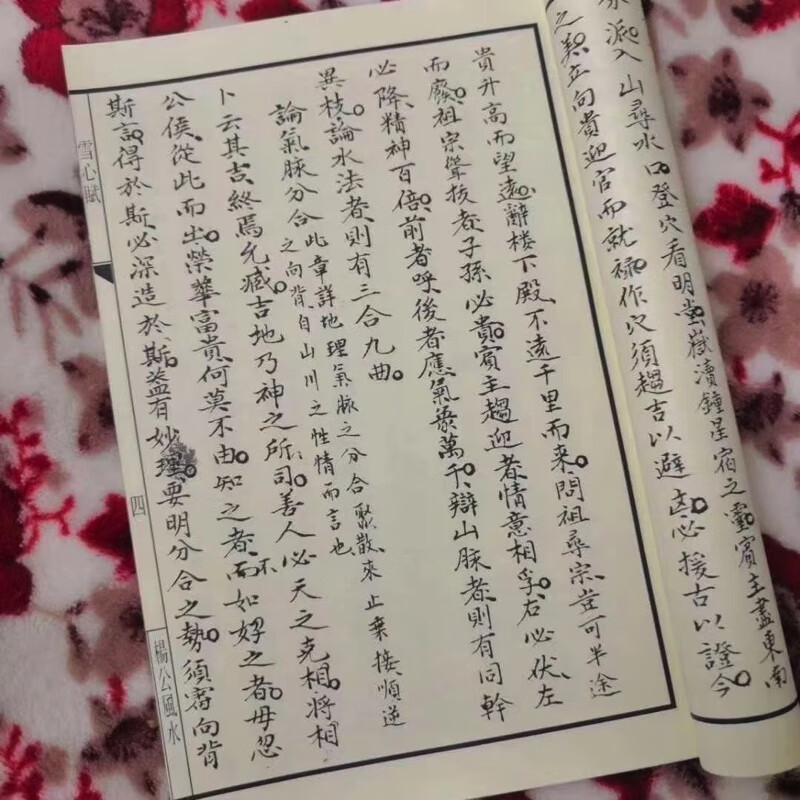 派入山尋水口登穴看明堂嶽瀆鍾星宿之靈賓主盡東南
之美立向貴迎官而就祿作穴須趨吉以避凶必援古以證今
貴升高而望遠辭楼下殿不遠千里而來問祖尋宗豈可半途
而廢祖宗聳拔者子孫必貴賓主趨迎者情意相孚右必伏左
必降精神百倍前者呼後者應氣象萬千辯山脉者則有同幹
異枝論水法者則有三合九曲
論氣脉分合
此章詳地理氣脉之分合聚散來止棄接順逆
之向背自山川之性情而言也
卜云其吉終焉允臧吉地乃神之所司善人必天之克相將相
公侯從此而出榮華富貴何莫不由知之者不如好之者毋忽
斯言得於斯必深造於斯盖有妙理要明分合之勢須審向背
雪心賦
四
楊公風水